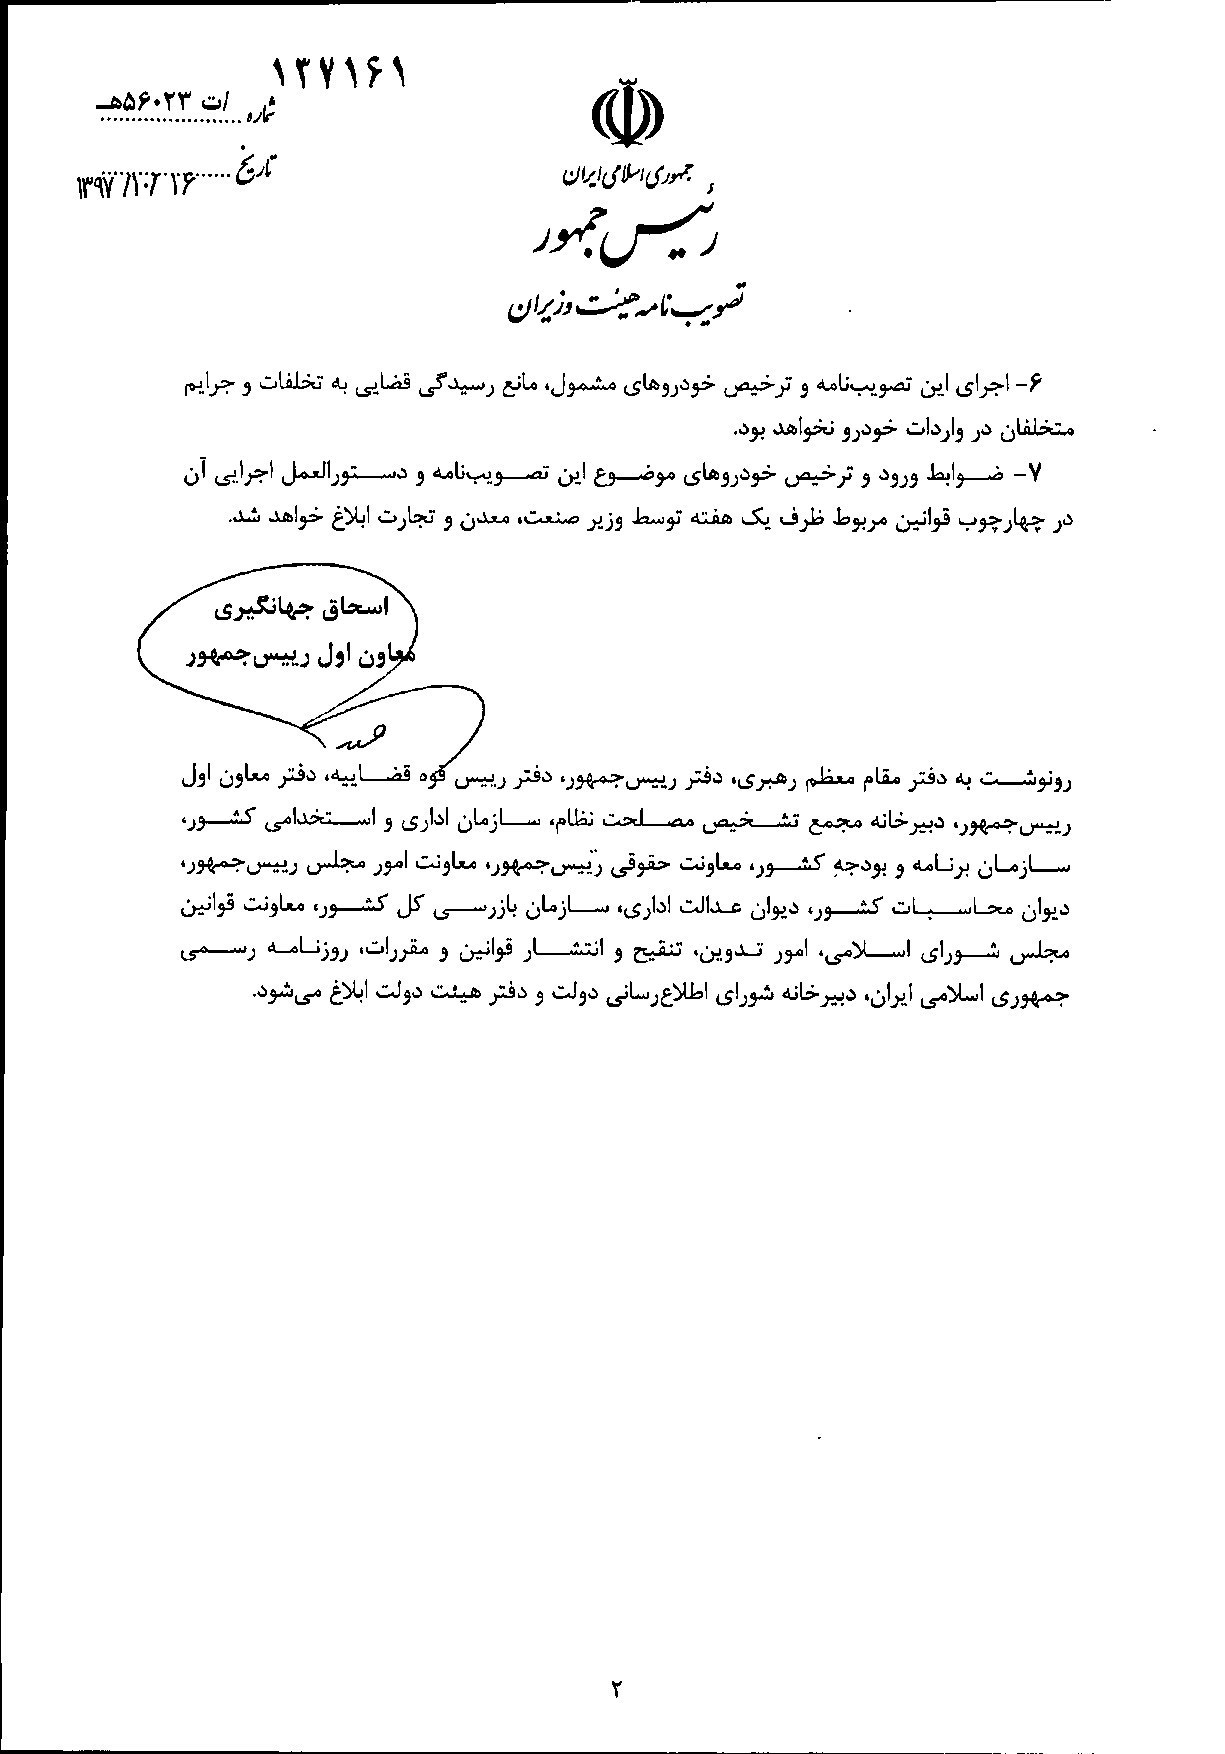 ۱۳۷۱۶۱
شماره /ت ۵۶۰۲۳هـ
تاریخ ۱۳۹۷/۱۰/۱۶
جمهوری اسلامی ایران
رئیس جمهور
تصویب نامه هیئت وزیران
۶- اجرای این تصویب‌نامه و ترخیص خودروهای مشمول، مانع رسیدگی قضایی به تخلفات و جرایم
متخلفان در واردات خودرو نخواهد بود.
۷- ضوابط ورود و ترخیص خودروهای موضوع این تصویب‌نامه و دستورالعمل اجرایی آن
در چهارچوب قوانین مربوط ظرف یک هفته توسط وزیر صنعت، معدن و تجارت ابلاغ خواهد شد.
اسحاق جهانگیری
معاون اول رییس‌جمهور
رونوشت به دفتر مقام معظم رهبری، دفتر رییس‌جمهور، دفتر رییس قوه قضاییه، دفتر معاون اول
رییس‌جمهور، دبیرخانه مجمع تشخیص مصلحت نظام، سازمان اداری و استخدامی کشور،
سازمان برنامه و بودجه کشور، معاونت حقوقی رییس‌جمهور، معاونت امور مجلس رییس‌جمهور،
دیوان محاسبات کشور، دیوان عدالت اداری، سازمان بازرسی کل کشور، معاونت قوانین
مجلس شورای اسلامی، امور تدوین، تنقیح و انتشار قوانین و مقررات، روزنامه رسمی
جمهوری اسلامی ایران، دبیرخانه شورای اطلاع‌رسانی دولت و دفتر هیئت دولت ابلاغ می‌شود.
۲